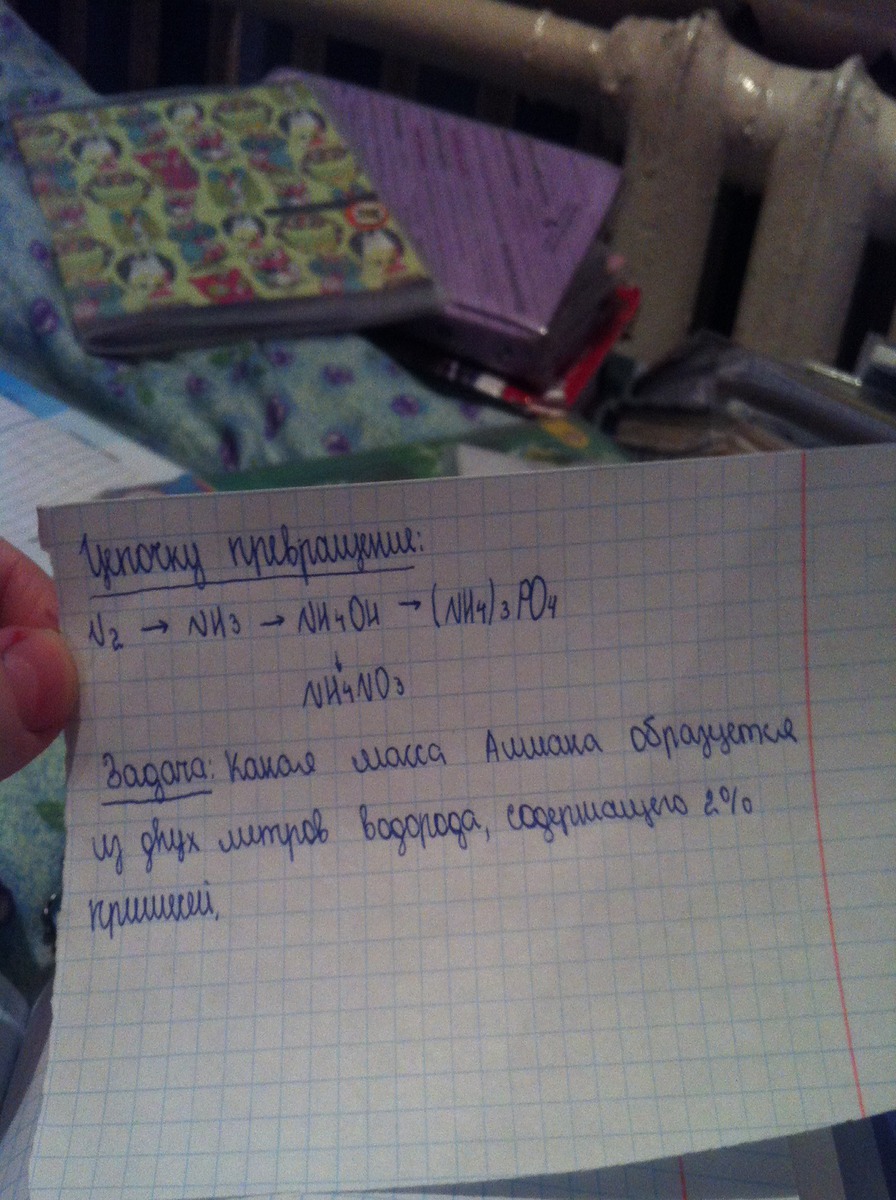 Цепочку превращение:
N2 → NH3 → NH4OH → (NH4)3PO4
↓
NH4NO3
Задача: Какая масса Аммиака образуется
из двух литров водорода, содержащего 2%
примесей.